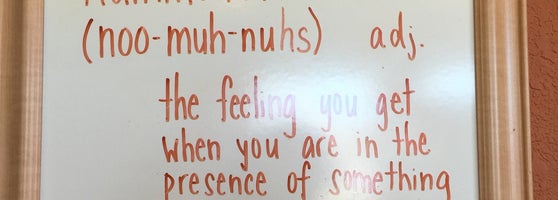 (noo-muh-nuhs) adj.
the feeling you get
when you are in the
presence of something